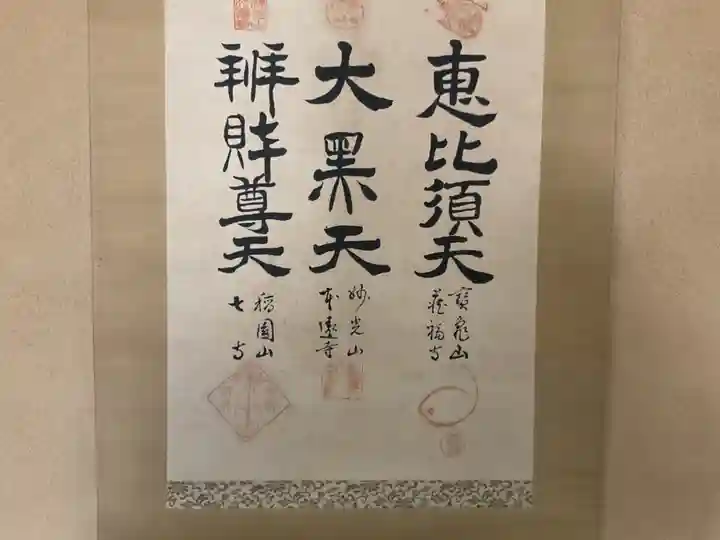 恵比須天
寶龜山
蔵福寺
大黑天
妙光山
本遠寺
辨財尊天
稲園山
七寺